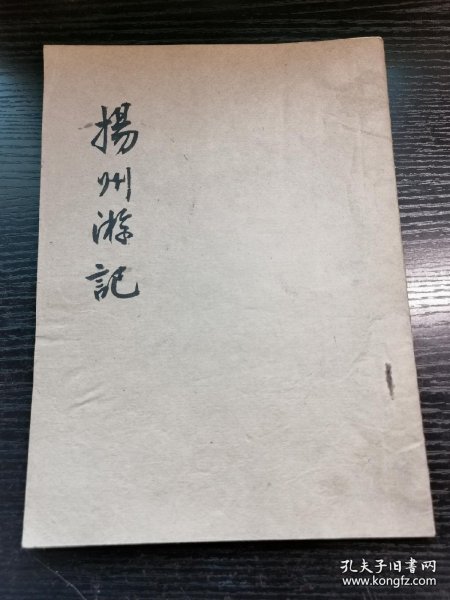 揚州游記
孔夫子旧书网
www.kongfz.com